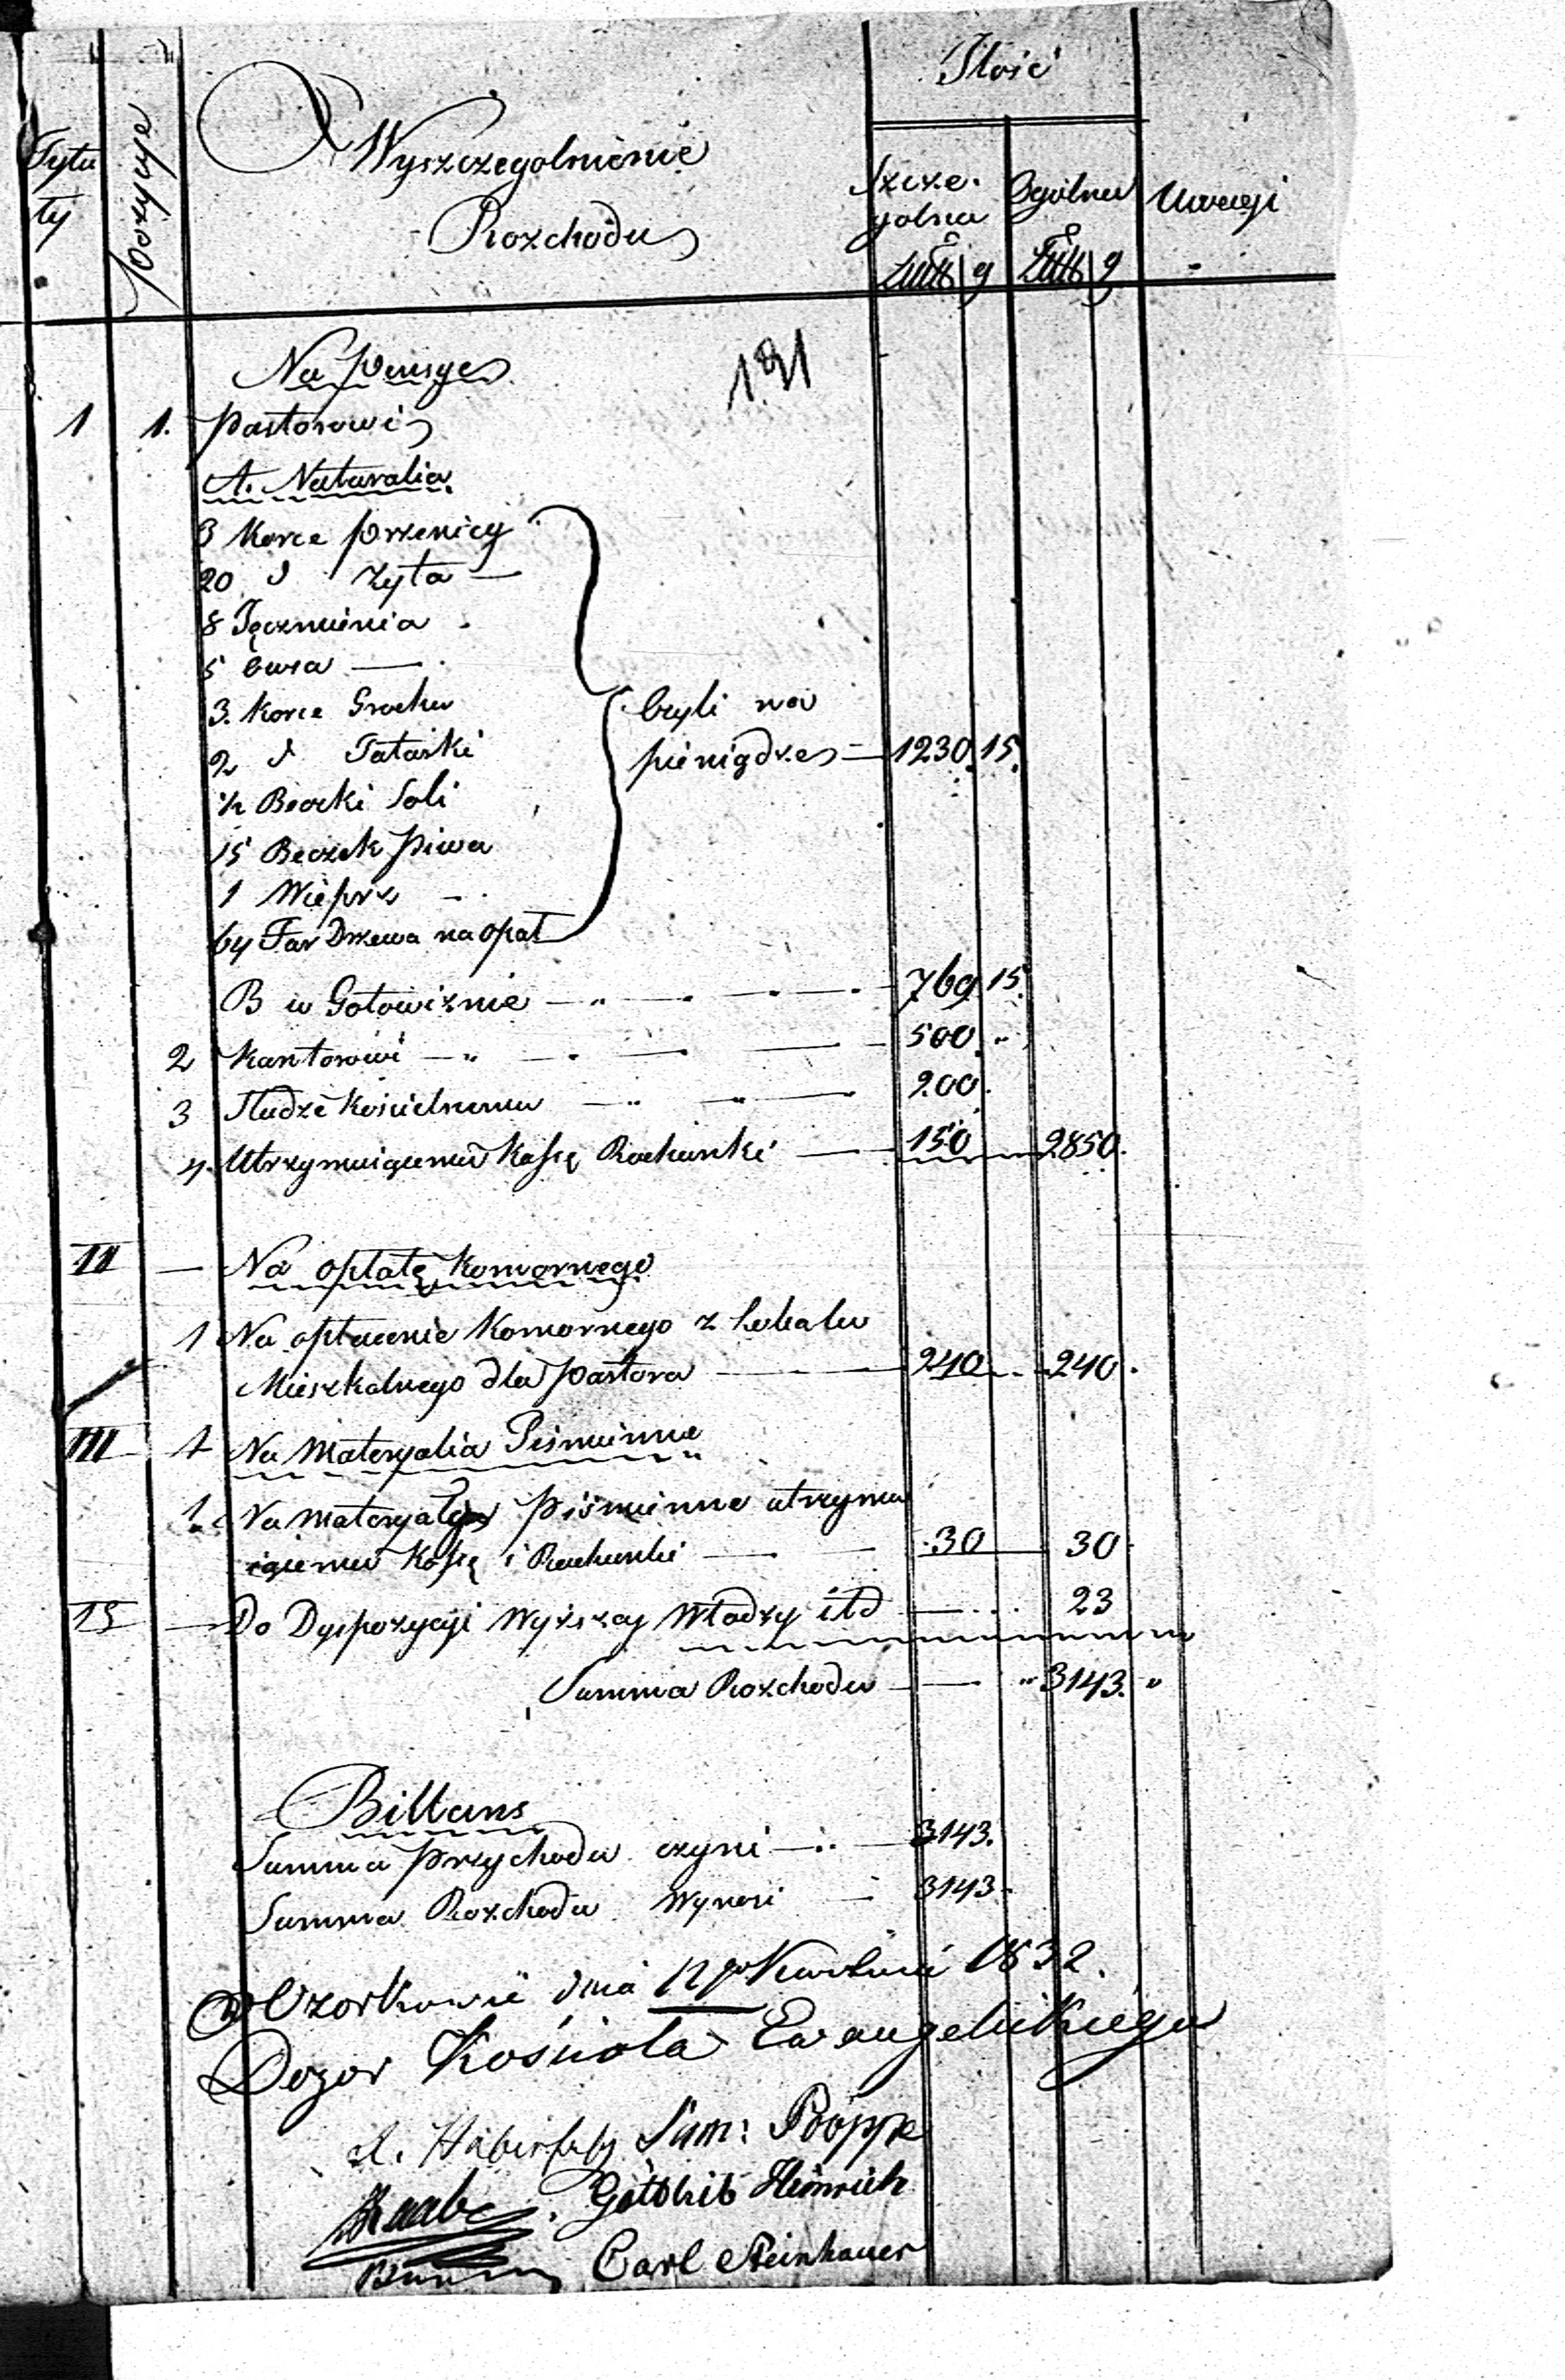 Ilość
Tytu
ły
Pozycye
Wyszczegolnienie
Rozchodu
Szcze-
golna
Ogólna
Uwagi
g
g
Na pensye
191
1 1. Pastorowi
A. Naturalia
3 Korce pszenicy
20 d Zyta —
8 Jęczmienia
5 Owsa —
3. Korce Grochu
2 d Tatarki
½ Beczki Soli
15 Beczek piwa
1 Wieprz —
64 Far Drzewa na opał
czyli na
pieniądze — 1230 15.
B w Gotowiznie — 769 15.
2 Kantorowi — 500 "
3 Słudze Kościelnemu — 200.
4. Utrzymuiącemu Kassę Rachunki — 150 2850.
II — Na opłatę Komornego
1 Na opłacenie Komornego z Lokalu
Mieszkalnego dla pastora — 240 240.
III 1 Na Materyalia Piśmienne
1. Na Materyały piśmienne utrzymu
iącemu Kassę i Rachunki — 30 30
— Do Dyspozycyi Wyższey Władzy itd — 23
Summa Rozchodu — " 3143. "
Billans
Summa przychodu czyni — 3143.
Summa Rozchodu Wynosi — 3143.
w Ozorkowie dnia 12go Kwietnia 1832.
Dozor Kościoła Ewangelickiego
Sam: Pöppe
Raabe. Gottlieb Heinrich
Carl Steinhauer